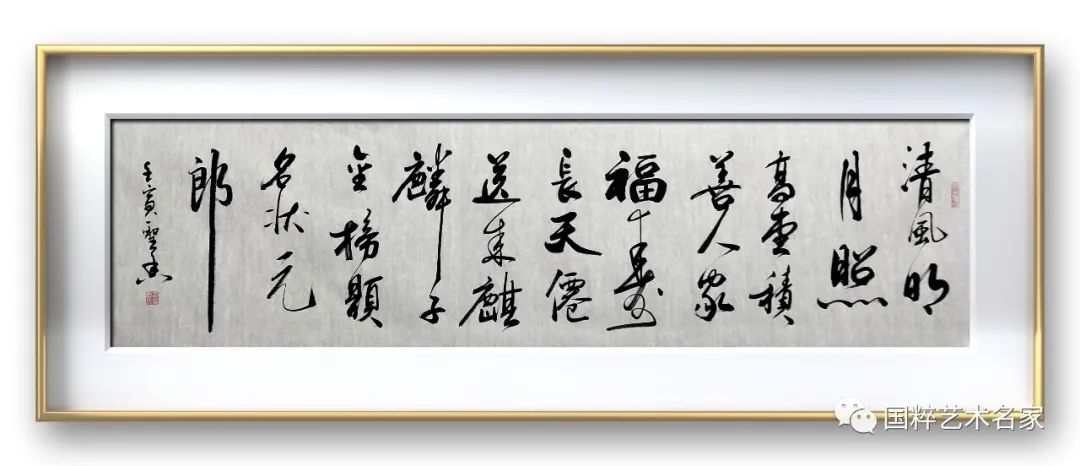 清風明
月照
高堂積
善人家
福壽
長天僊
送來麒
麟子
金榜題
名状元
郎
壬寅聖
国粹艺术名家